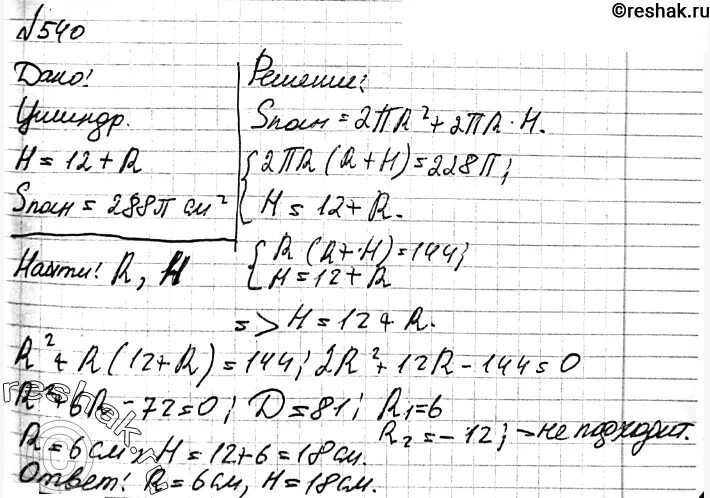 ©reshak.ru
№540
Дано:
Цилиндр.
H = 12 + R
Sпол = 288π см²
Найти: R, H
Решение:
Sпол = 2πR² + 2πR · H.
{ 2πR (R + H) = 228π;
H = 12 + R.
{ R (R + H) = 144;
H = 12 + R
=> H = 12 + R.
R² + R (12 + R) = 144; 2R² + 12R - 144 = 0
R² + 6R - 72 = 0; D = 81; R₁ = 6
R₂ = -12; - не подходит.
R = 6 см, H = 12 + 6 = 18 см.
Ответ: R = 6 см, H = 18 см.
reshak.ru